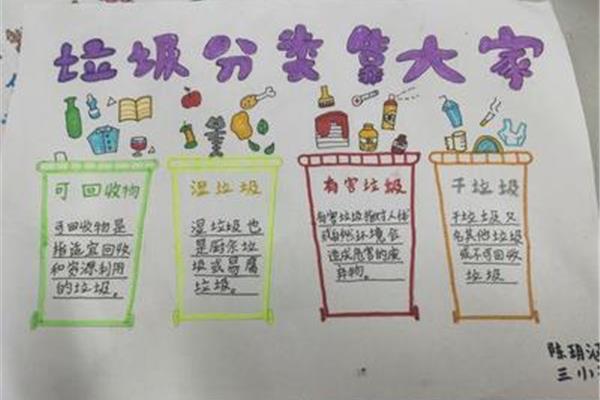 垃圾分类靠大家
可回收物
可回收物是
指适宜回收
和资源利用
的垃圾。
湿垃圾
湿垃圾也
是厨余垃
圾或易腐
垃圾。
有害垃圾
有害垃圾指对人体
或自然环境会
造成危害的废
弃物。
干垃圾
干垃圾又
名其他垃圾
或不可回收
垃圾
陈玥涵
三小